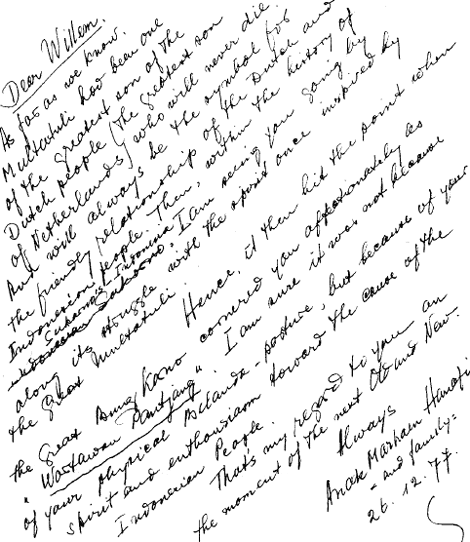 Dear Willem.
As far as we know.
Multatuli had been one
of the greatest son of the
Dutch people / the greatest son
of Netherlands / who will never die
And will always be the symbol for
the friendly relationship of the Dutch and
Indonesian people. Then, within the history of
Sukarno's Indonesia I am seeing you going by
along its struggle with the spirit once inspired by
the great Multatuli.
Hence, it then hit the point when
the great Bung Karno cornered you affectionately as
"Wartawan Pantjang". I am sure it was not because
of your physical Belanda-posture, but because of your
spirit and enthousiasm toward the cause of the
Indonesian People.
That's my regard to you an
the moment of the next Old and New.
Always
Anak Marhaen Hanafi
- and family=
26.12.77.